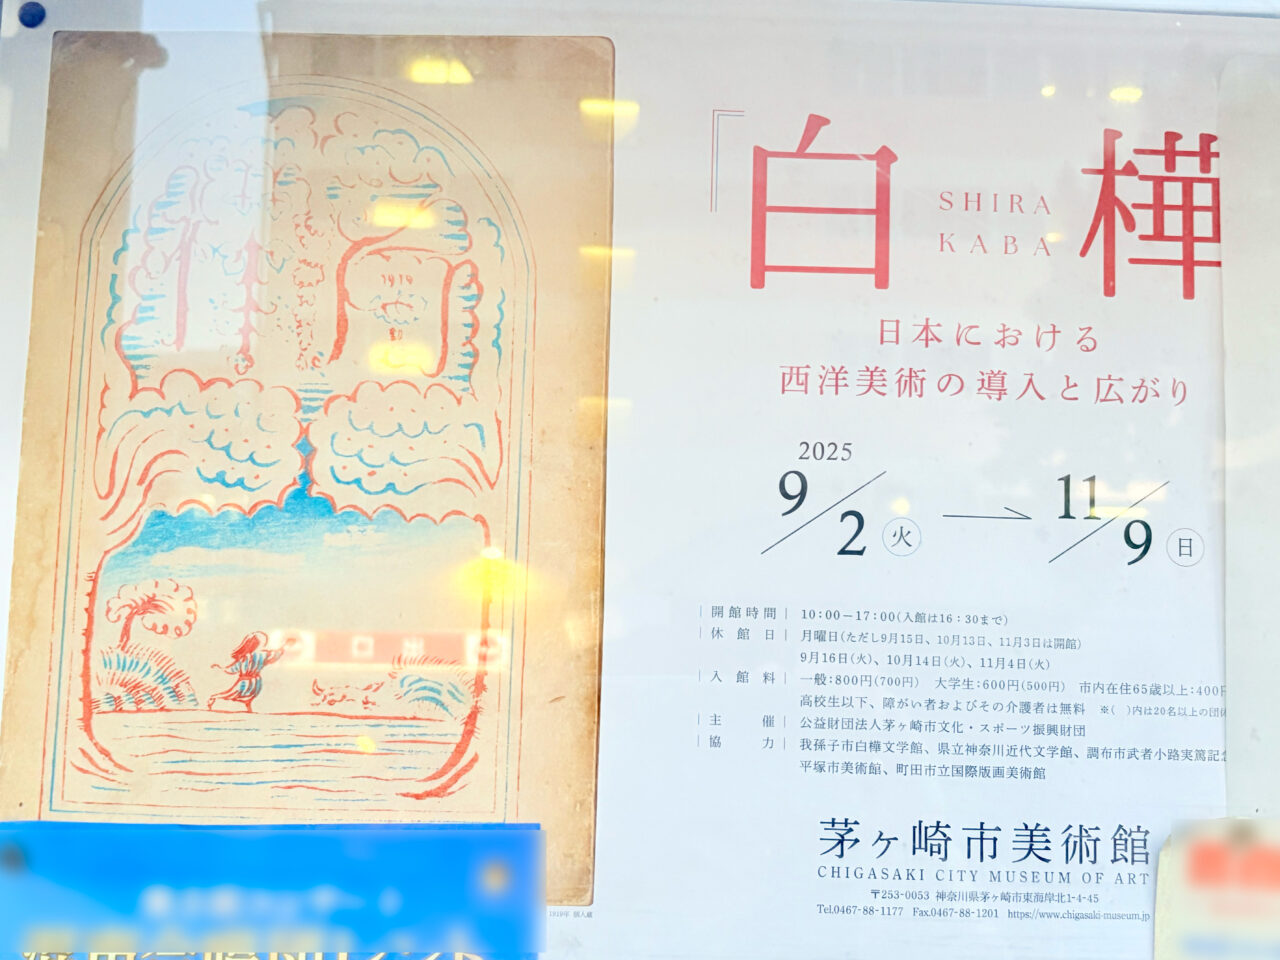 「白樺
SHIRA
KABA
日本における
西洋美術の導入と広がり
2025
9/2 火 → 11/9 日
|開館時間| 10:00－17:00(入館は16：30まで)
|休館日| 月曜日(ただし9月15日、10月13日、11月3日は開館)
9月16日(火)、10月14日(火)、11月4日(火)
|入館料| 一般：800円(700円) 大学生：600円(500円) 市内在住65歳以上：400円
高校生以下、障がい者およびその介護者は無料 ※( )内は20名以上の団体
|主催| 公益財団法人茅ヶ崎市文化・スポーツ振興財団
|協力| 我孫子市白樺文学館、県立神奈川近代文学館、調布市武者小路実篤記念
平塚市美術館、町田市立国際版画美術館
茅ヶ崎市美術館
CHIGASAKI CITY MUSEUM OF ART
〒253-0053 神奈川県茅ヶ崎市東海岸北1-4-45
Tel.0467-88-1177 Fax.0467-88-1201 https://www.chigasaki-museum.jp
1919
出口
1919年 個人蔵